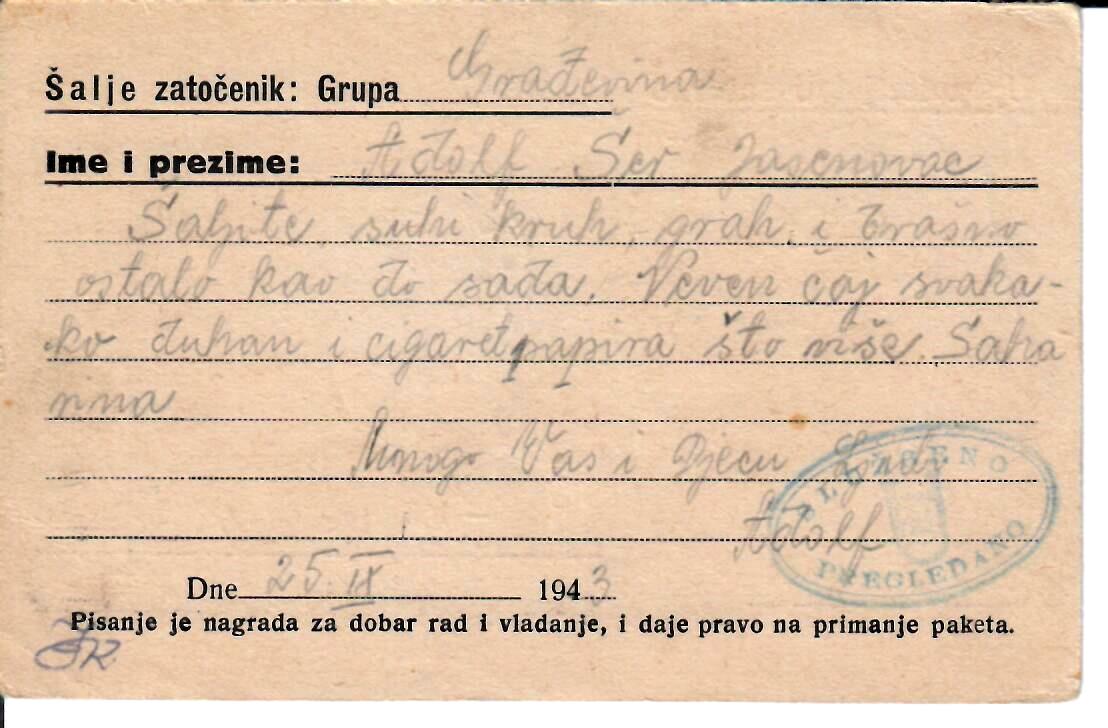 Šalje zatočenik: Grupa Građevina
Ime i prezime: Adolf Šer Jasenovac
Šaljite suhi kruh, grah, i brašno
ostalo kao do sada. Veven čaj svaka-
ko duhan i cigaretpapira što više. Saha
rina
Mnogo Vas i Djecu ljubi
Adolf
SLUŽBENO
PREGLEDANO
Dne 25 IX 1943
Pisanje je nagrada za dobar rad i vladanje, i daje pravo na primanje paketa.